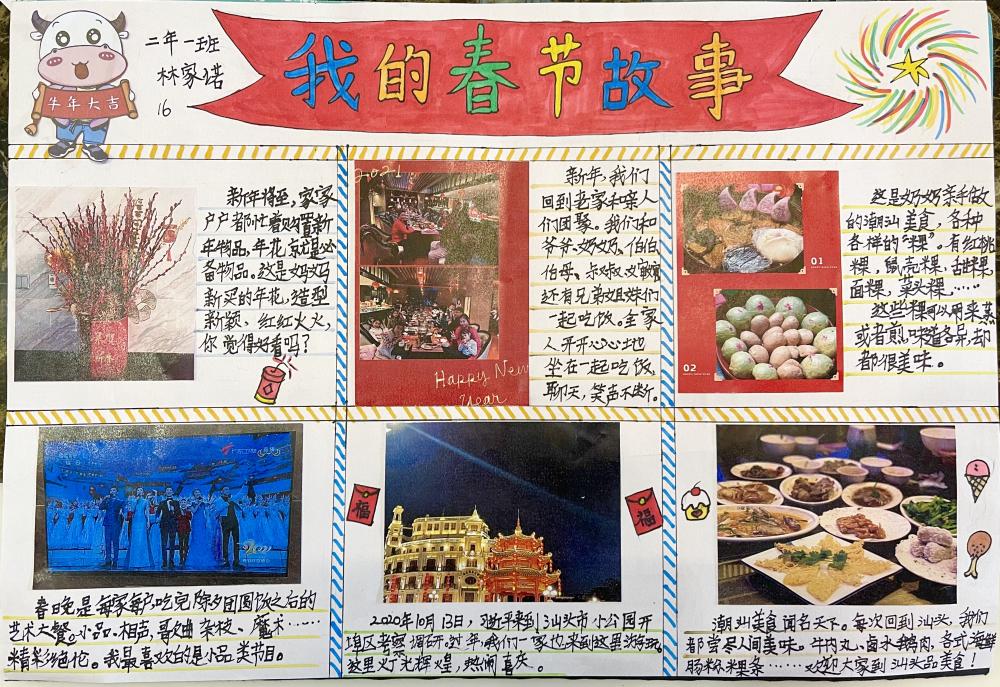 二年一班
林家诺
16
牛年大吉
我的春节故事
新年将至,家家
户户都忙着购置新
年物品,年花就是必
备物品。这是妈妈
新买的年花,造型
新颖,红红火火,
你觉得好看吗?
2021
Happy New
Year
新年,我们
回到老家和亲人
们团聚。我们和
爷爷、奶奶、伯伯
伯母、叔叔、
还有兄弟姐妹们
一起吃饭。全家
人开开心心地
坐在一起吃饭,
聊天,笑声不断。
01
02
这是奶奶亲手做
的潮汕美食,各种
各样的“粿”。有红桃
粿,鼠壳粿,甜粿,
面粿,菜头粿,……
这些粿可以用来蒸
或者煎,味道各异,却
都很美味。
广东卫视
春晚是每家每户吃完除夕团圆饭之后的
艺术大餐。小品、相声,歌曲、杂技、魔术……
精彩绝伦。我最喜欢的是小品类节目。
福
福
2020年10月13日,习近平来到汕头市小公园开
埠区考察调研。过年,我们一家也来到这里游玩,
这里灯光辉煌,热闹喜庆。
潮汕美食闻名天下。每次回到汕头,我们
都尝尽人间美味。牛肉丸、卤水鹅肉,各式海鲜
肠粉、粿条……欢迎大家到汕头品美食!